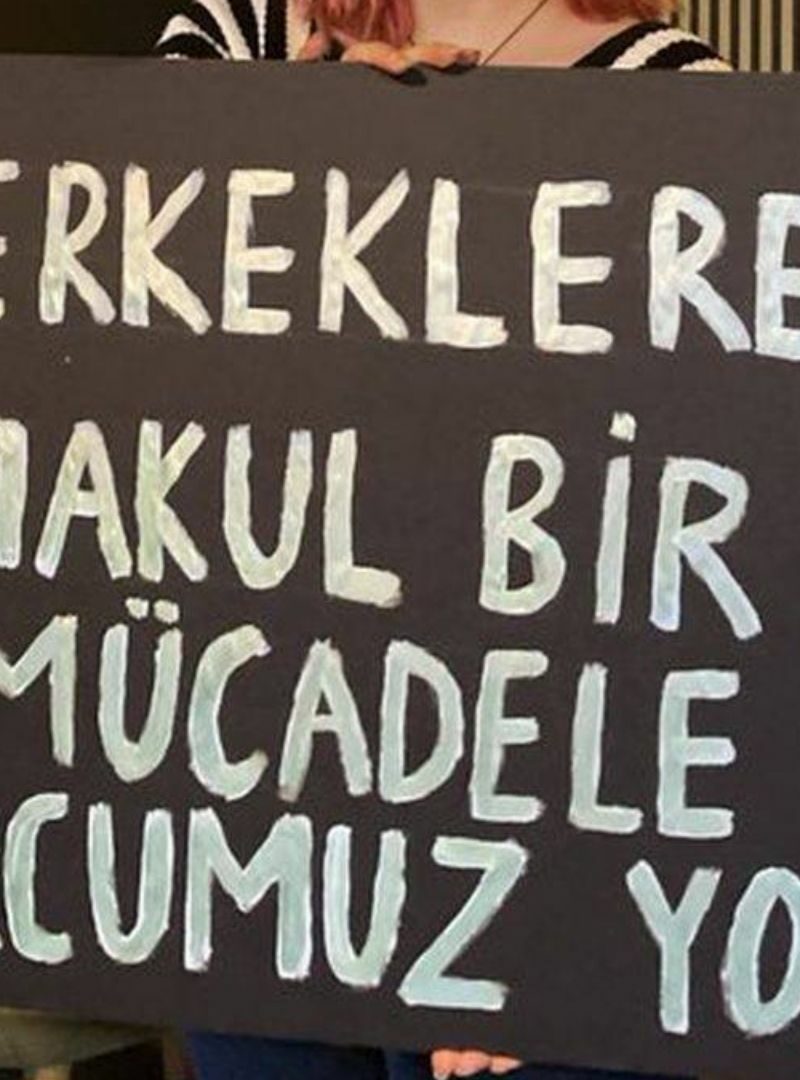 ERKEKLERE
MAKUL BİR
MÜCADELE
CUMUZ YO